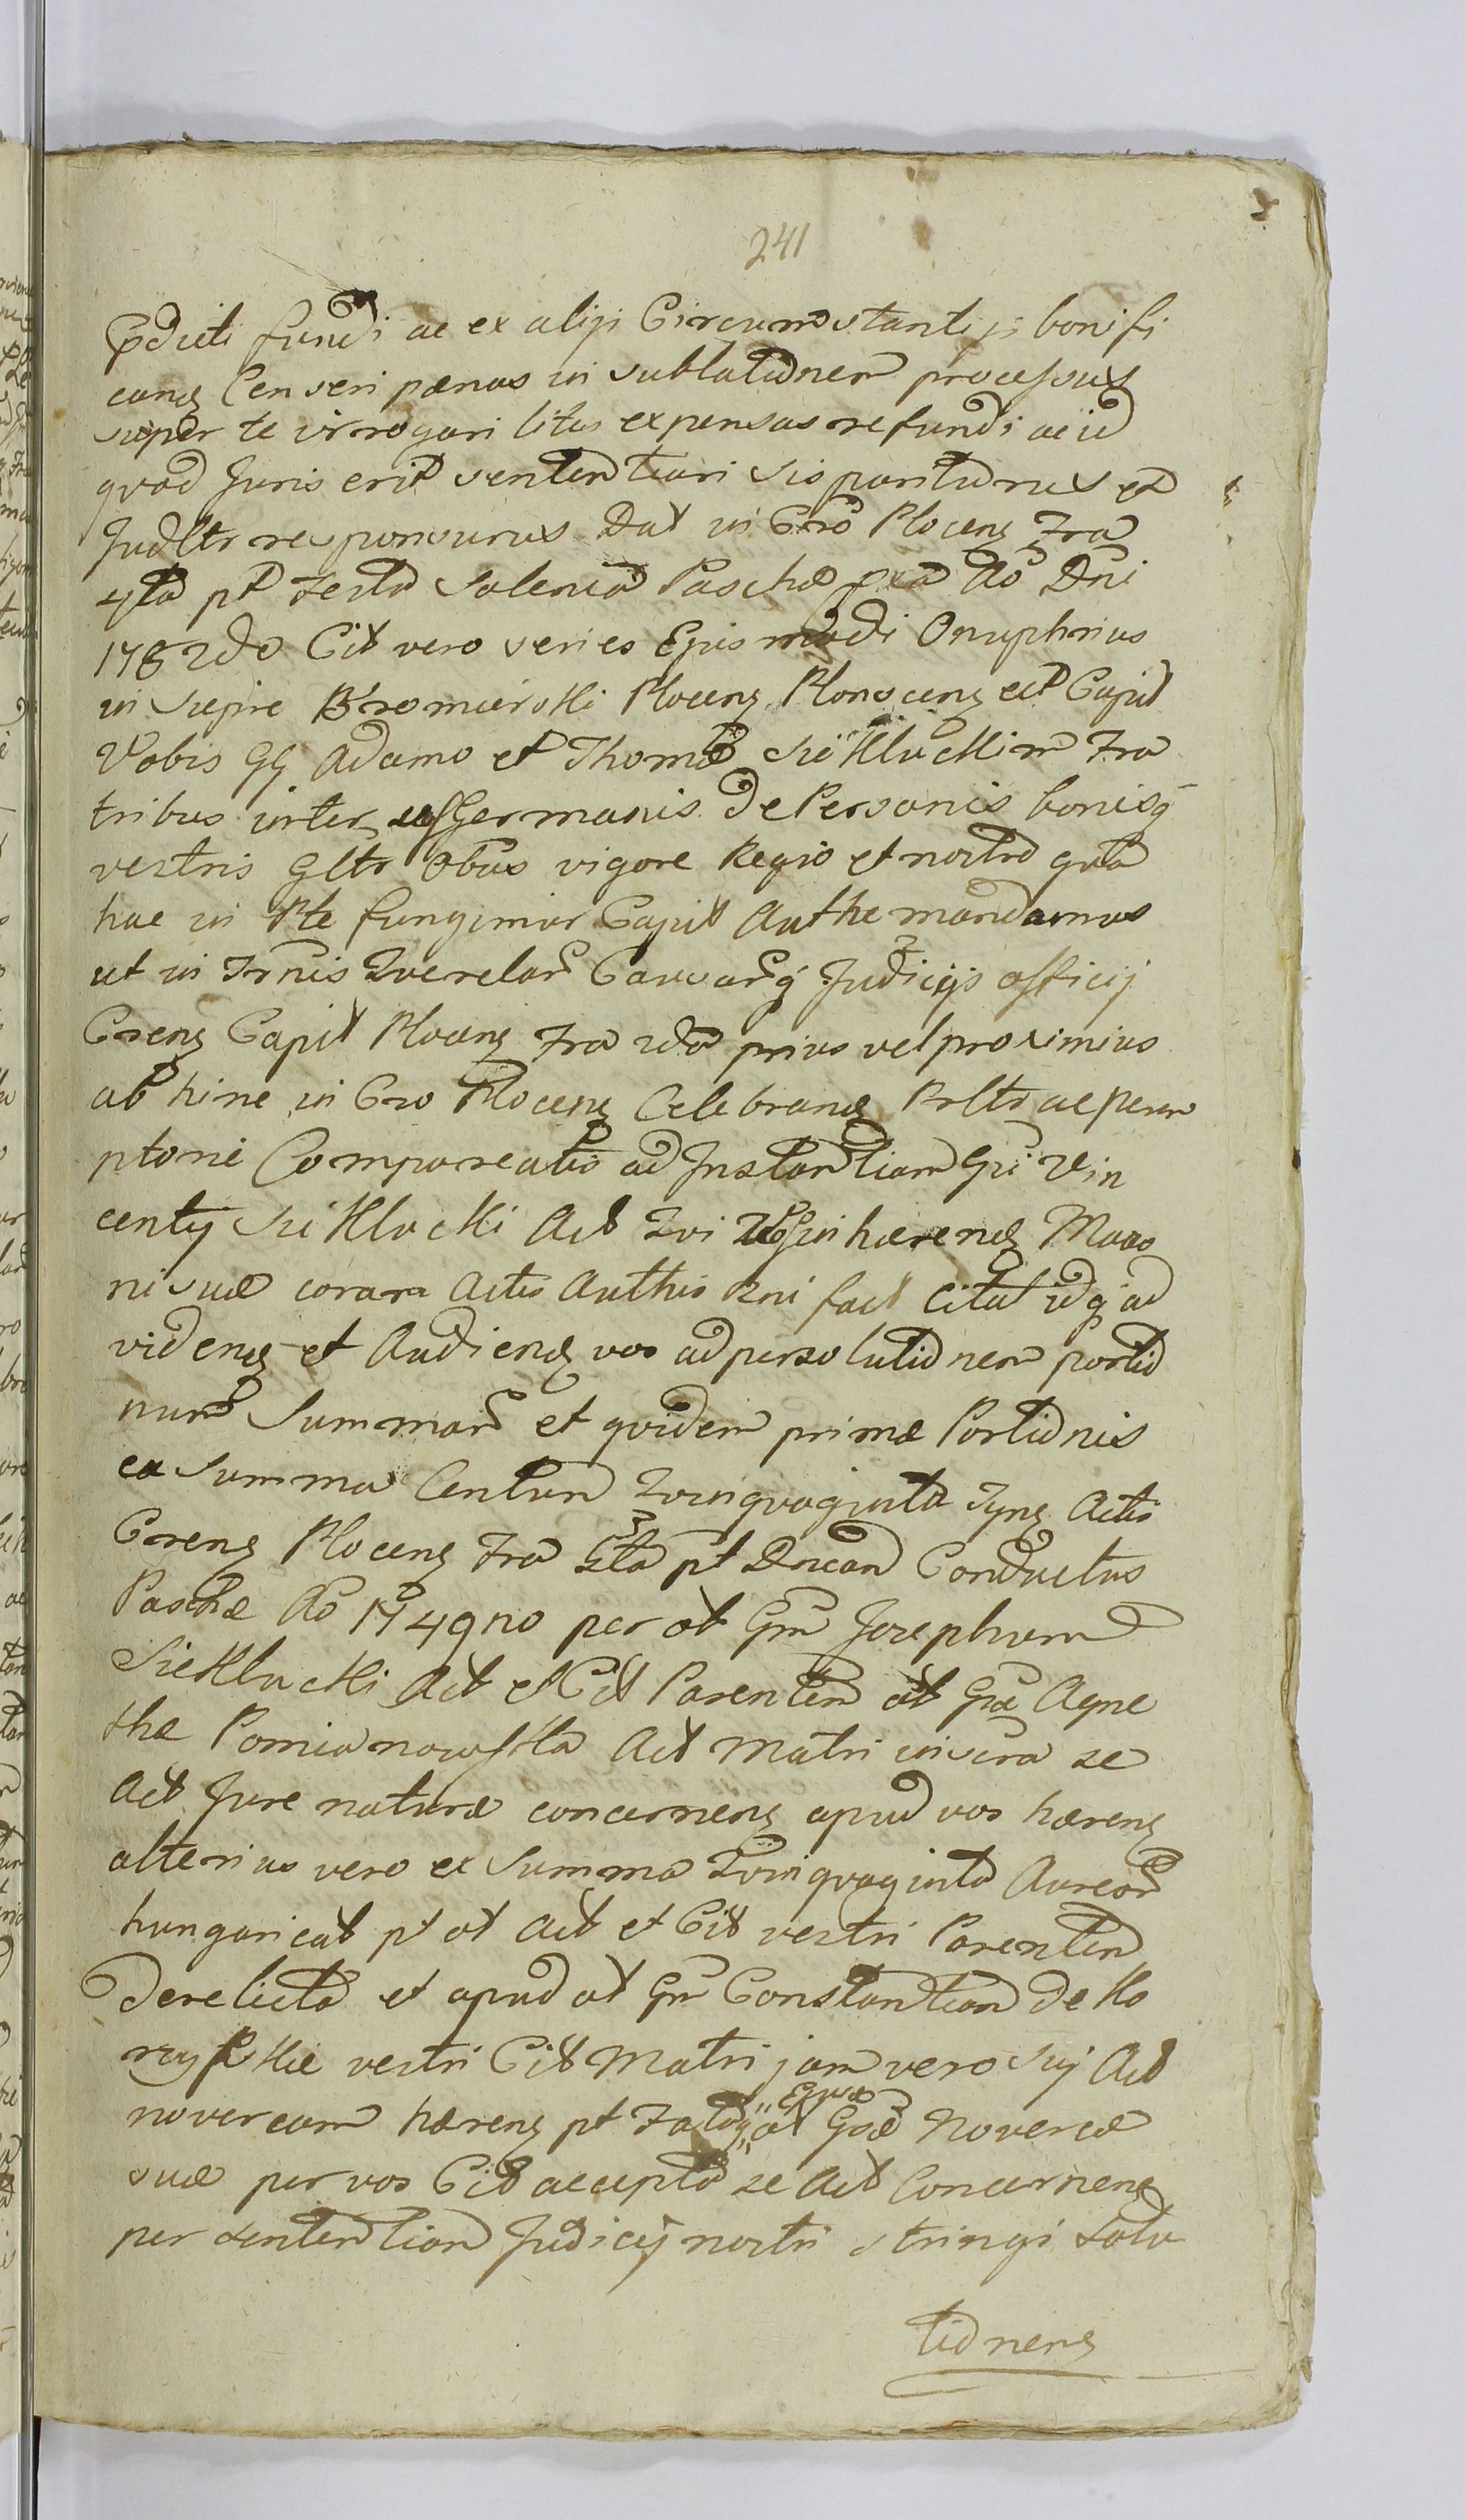 241
Pdicti fundi ac ex aliji Circumstantiji bonifi
cang Censeri pænas in sublationem processus
super te irrogari litis expensas refundi ac id
quod Juris erit sententiari sis pariturus et
Judltr responsurus Dat in Cro Plocens Fra
4ta pt Festa Solenia Paschæ pxa Ao Dni
1782do Cit vero series Ejusmodi Onuphrius
in Siepie Bromierski Plocens Plonscens etc Capit
Vobis GG Adamo et Thomæ Sieklucki m Fra
tribus inter se Germanis de Personis bonisq
vestris Gltr Obus vigore Regio et nostro qua
hac in Pte fungimur Capit Authe mandamus
ut in Trnis Querelar Causarq Judicijs officij
Crens Capit Plocens Fra 2da prius vel proximius
ab hinc in Cro Plocens Celebrand Prltr ac perem
ptorie Compareatis ad Instantiam Gsi Vin
centij Sieklucki Act Qui inhærend Mani
ni suæ coram Actis Authis Rni fact citat idq ad
vidend et Audiend vos ad persolutionem portio
num Summar et quidem primæ Portionis
ea Summa Centum Quinquaginta Tyns Actis
Crens Plocens Fra 5ta pt Dnicam Conductus
Paschæ Ao 1749no per ol Gm Josephum
Sieklucki Act et Cit Parentem ol Gsæ Agne
thæ Pomianowska Act Matri inscra se
Act Jure naturæ concernens apud vos hærens
alterius vero ex Summa Quinquaginta Aureor
hungaricat pt ol Act et Cit vestri Parentem
Derelicta et apud ol Gm Constantiam de Ko
ryskie vestri Cit Matri jam vero sui Act
novercam hærens pt Fata „Ejusd„ ol Gsæ Novercæ
suæ per vos Cit accepta se Act Concernens
per sententiam Judicij nostri stringi solu
tionens